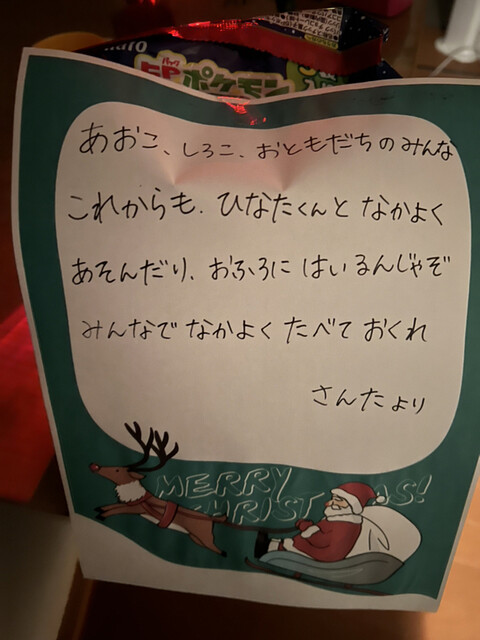 ポケモン
あおこ、しろこ、おともだちのみんな
これからも、ひなたくんと なかよく
あそんだり、おふろに はいるんじゃぞ
みんなで なかよく たべて おくれ
さんたより
MERRY
CHRIST AS!